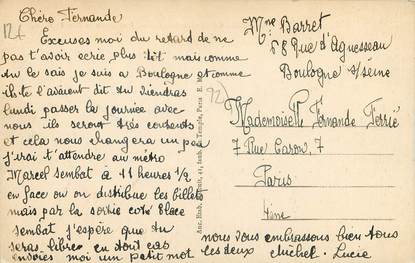 Chéro Fernande
Excuses moi du retard de ne
pas t'avoir ecrie plus tôt mais comme
tu le sais je suis a Boulogne et comme
ils te l'avaient dit tu viendras
lundi passer la journée avec
nous ils seront très contents
et cela nous changera un peu
j'irai t'attendre au métro
Marcel Sembat à 11 heures 1/2
en face ou on distribue les billets
mais par la sortie coté place
Sembat j'espère que tu
seras libre en tout cas
envoies moi un petit mot
Mme Barret
58 Rue d'Aguesseau
Boulogne s/seine
Mademoiselle Fernande Ferrié
7 Rue Caron 7
Paris
4ème
nous vous embrassons bien tous
les deux Michel - Lucie
92
Temple, Paris